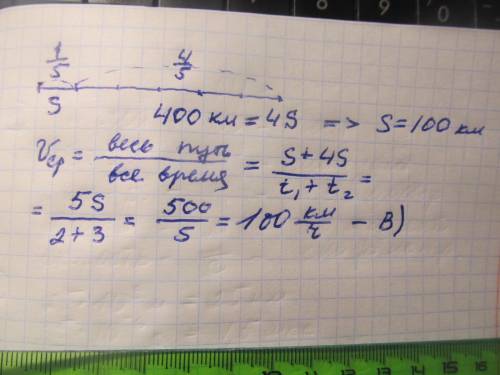 1/5 4/5
S 400 км = 4S => S = 100 км
Vср = весь путь / все время = S + 4S / t₁ + t₂ =
= 5S / 2 + 3 = 500 / 5 = 100 км/ч – В)